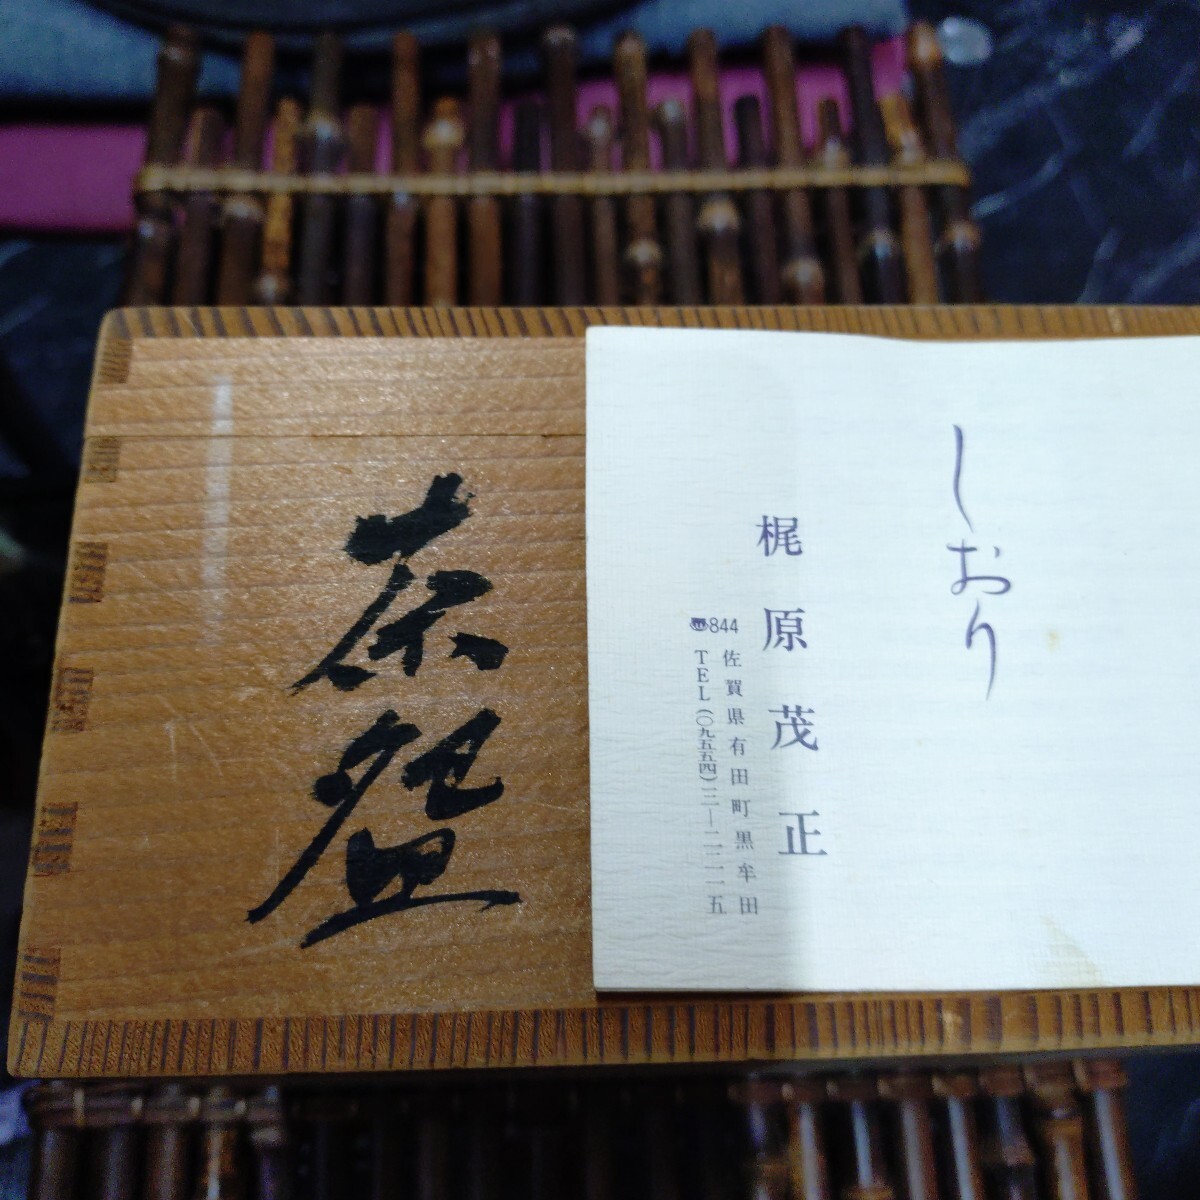 しおり
梶原茂正
〠844 佐賀県有田町黒牟田
TEL(〇九五五四)三―二二一五
茶盌